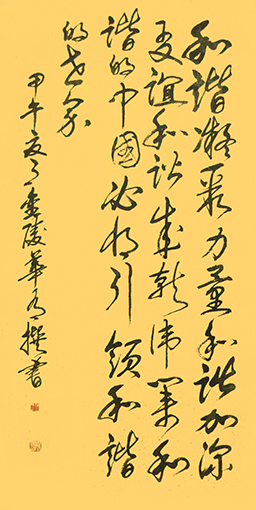 和谐凝聚力量和谐加深
友谊和谐成就伟業和
谐的中國必将引领和谐
的世界
甲午夏月金陵華撰書